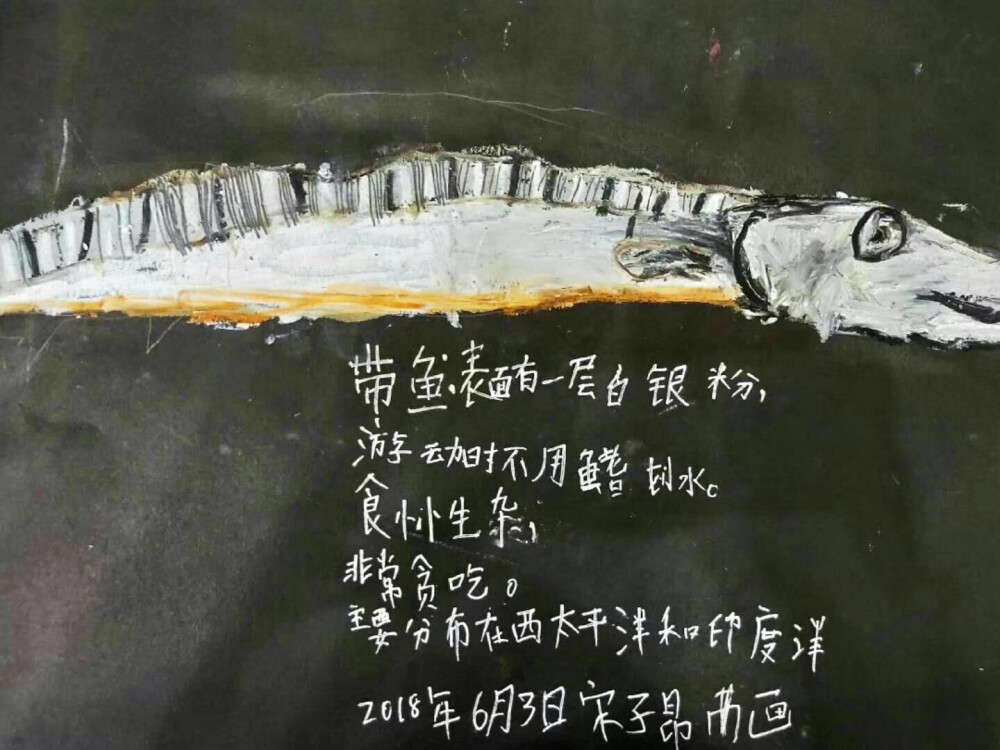 带鱼表面有一层白银粉,
游动时不用鳍划水。
食性生杂,
非常贪吃。
主要分布在西太平洋和印度洋
2018年6月3日宋子昂 画